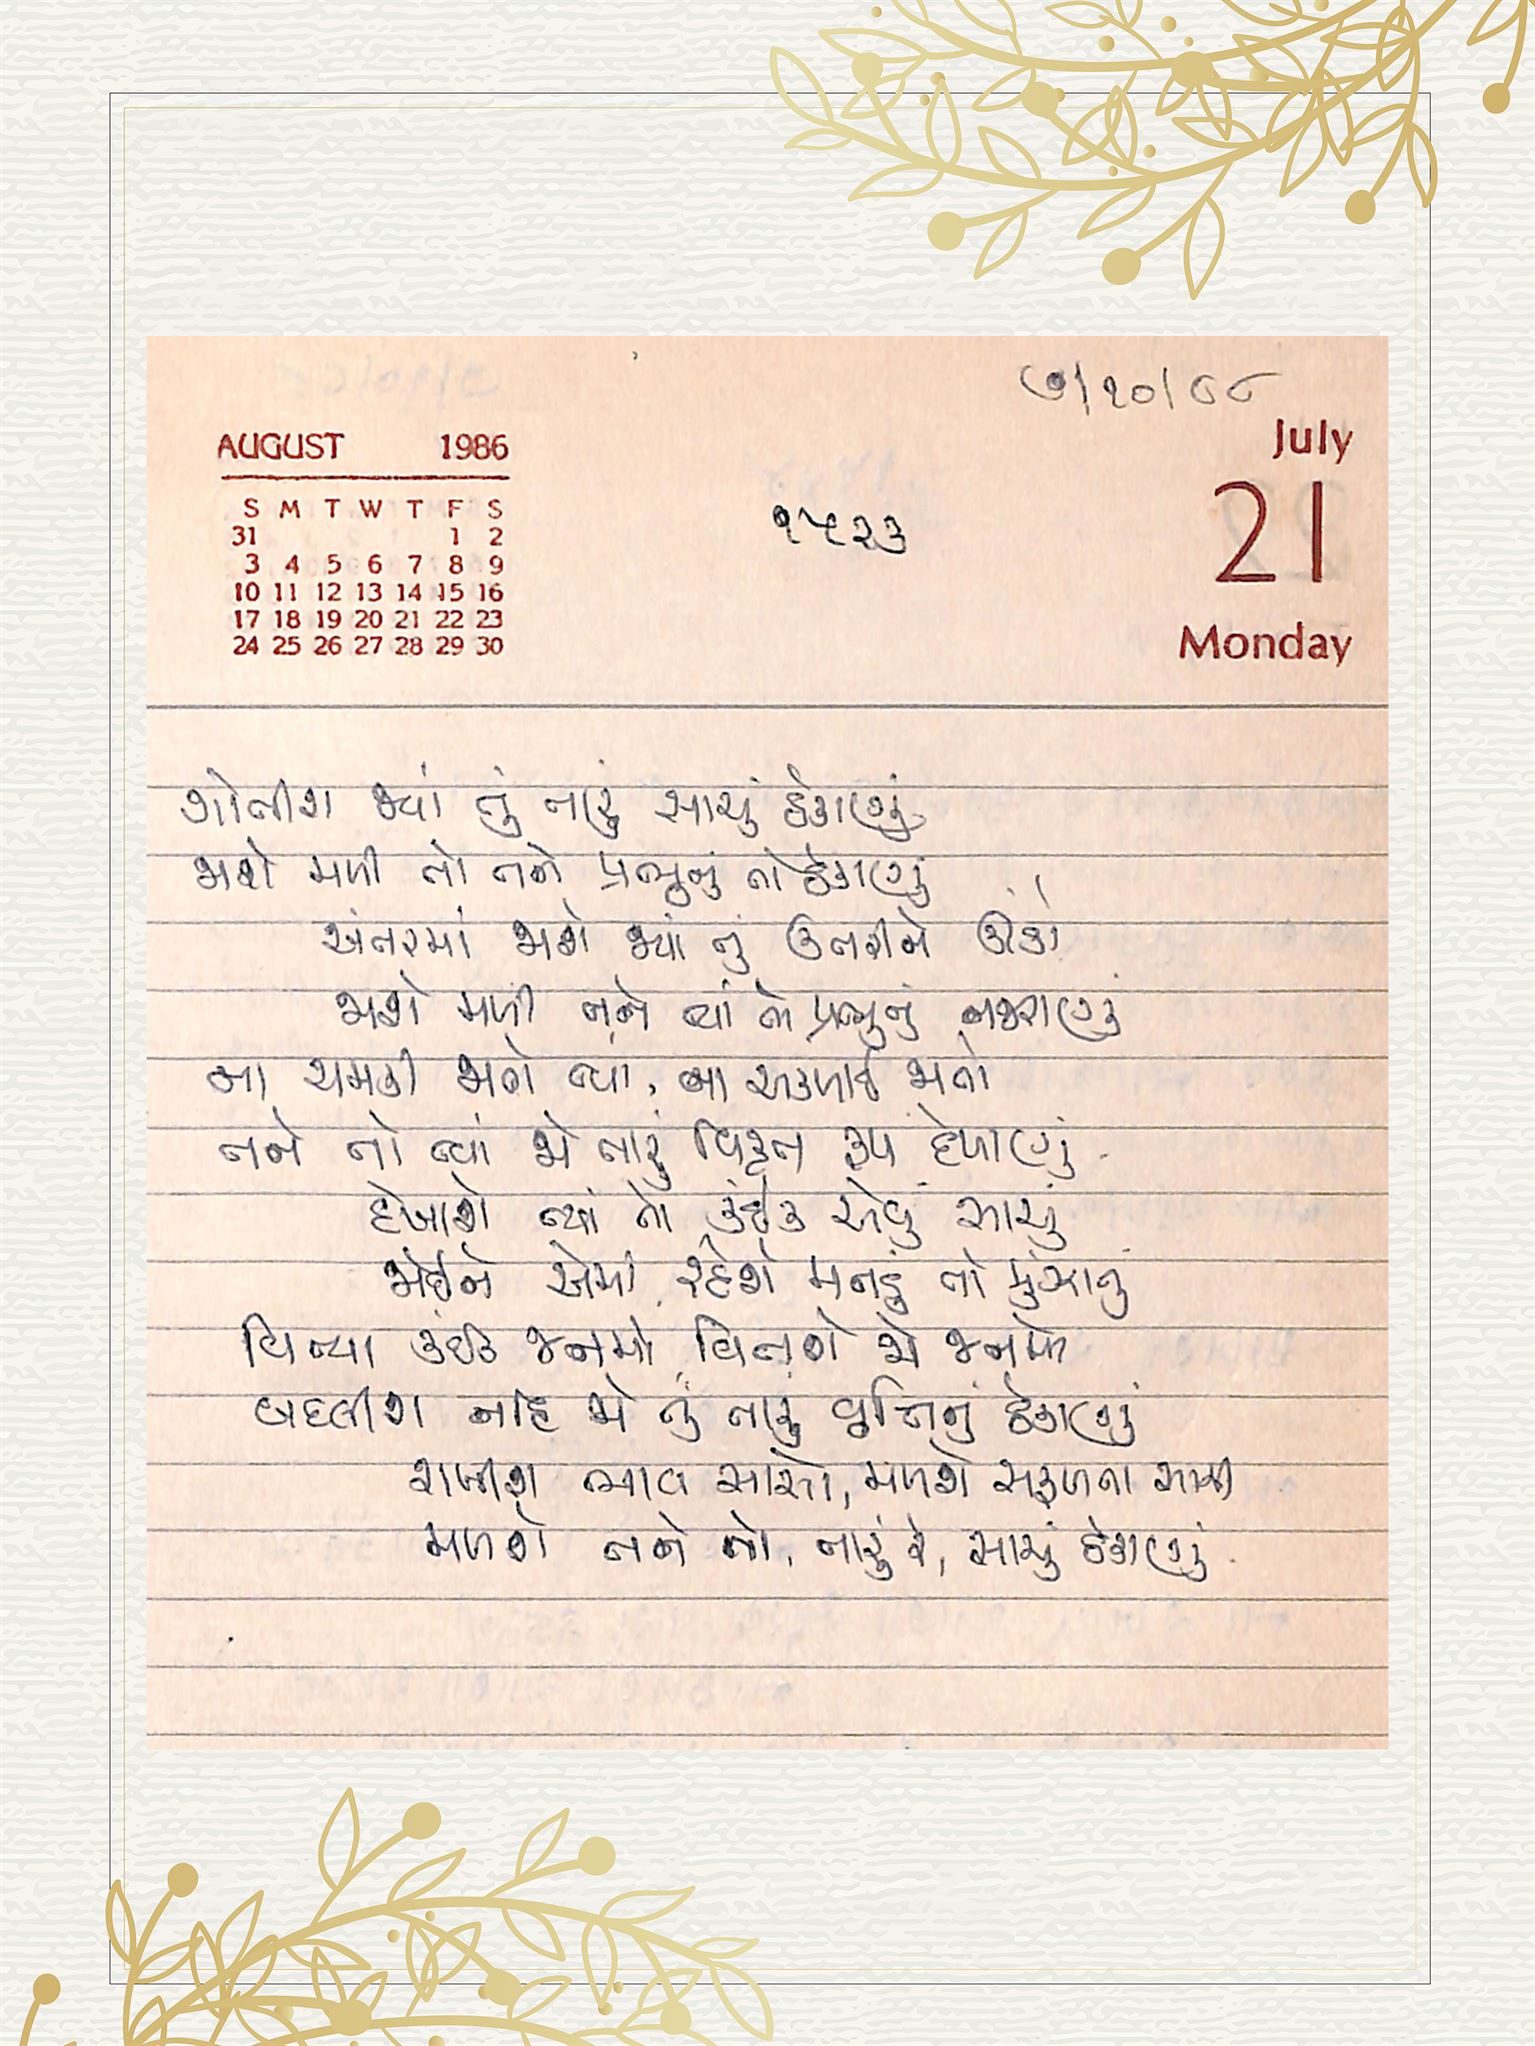 ૭/૧૦/૮૮
AUGUST 1986
July
S M T W T F S
31 1 2
3 4 5 6 7 8 9
10 11 12 13 14 15 16
17 18 19 20 21 22 23
24 25 26 27 28 29 30
૧૫૨૩
21
Monday
ગોતીશ જ્યાં તું તારું સાચું ઠેકાણું
જાશે મળી તો તને પ્રભુનું તો ઠેકાણું
અંતરમાં જાશે જ્યાં તું ઉતરીને ઊંડો
જાશે મળી તને ત્યાં તો પ્રભુનું નજરાણું
ના ચમકી જાતો ત્યાં, ના અકળાઈ જાતો
તને તો ત્યાં જો તારું વિકૃત રૂપ દેખાણું
દેખાશે ત્યાં તો કંઈક એવું સાચું
જોઈને એમાં રહેશે મનડું તો મુંઝાતું
વિત્યા કંઈક જનમો, વિતશે જો જનમો
બદલીશ નહિ જો તું તારું વૃત્તિનું ઠેકાણું
રાખીશ ભાવ સાચો, મળશે સફળતા સાચી
મળશે તને તો, તારું રે, સાચું ઠેકાણું